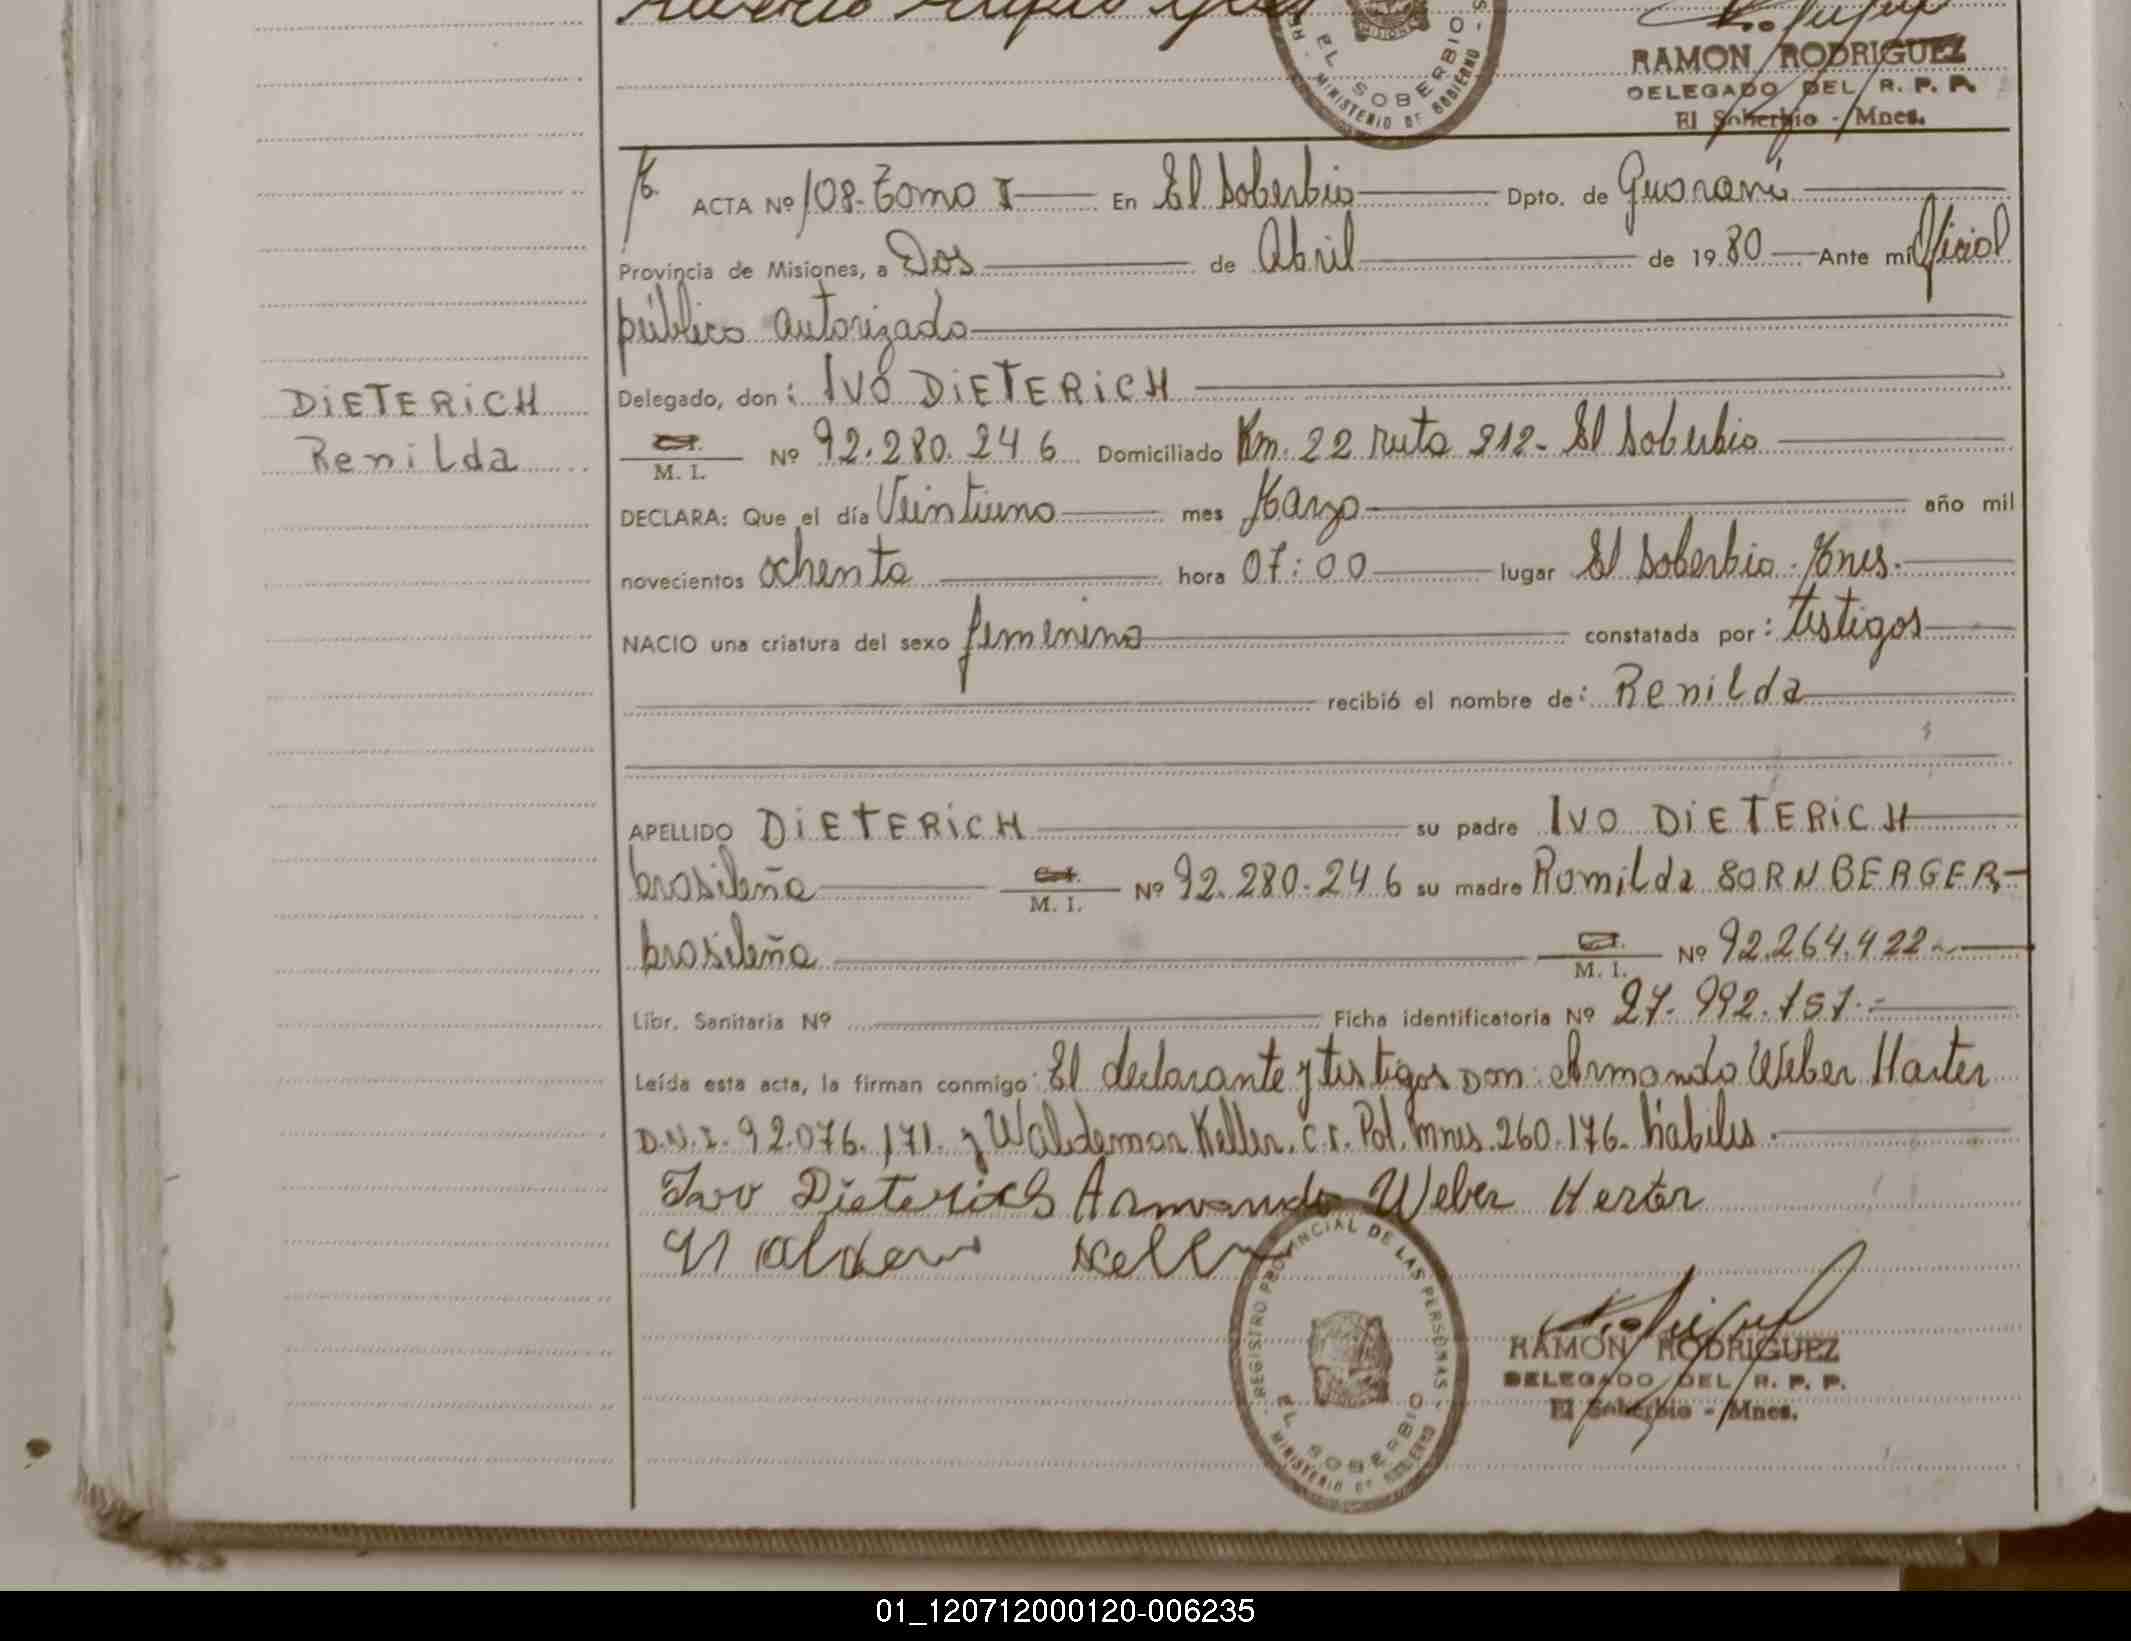 EL SOBERBIO
MINISTERIO DE GOBIERNO
RAMON RODRIGUEZ
DELEGADO DEL R. P. P.
El Soberbio - Mnes.
ACTA Nº 108- Tomo I En El Soberbio Dpto. de Guaraní
Provincia de Misiones, a Dos de Abril de 1980 Ante mí Oficial
público autorizado
Delegado, don: IVO DiETERiCH
DiETERiCH
Renilda
M. I. Nº 92.280.246 Domiciliado Km. 22 ruta 212- El Soberbio
DECLARA: Que el día Veintiuno mes Marzo año mil
novecientos ochenta hora 07:00 lugar El Soberbio. Mnes.
NACIO una criatura del sexo femenino constatada por: testigos
recibió el nombre de: Renilda
APELLIDO DiETERiCH su padre IVO DiETERiCH
brasileña C.I. M. I. Nº 92.280.246 su madre Romilda SORNBERGER
brasileña M. I. Nº 92.264.422
Libr. Sanitaria Nº Ficha identificatoria Nº 27.992.757.-
Leída esta acta, la firman conmigo El declarante y testigos Don: Armando Weber Harter
D.N.I. 92.076.171. y Waldemar Keller. C.I. Pol. Mnes. 260.176. hábiles.
Ivo Dieterich Armando Weber Herter
Waldem Kell
REGISTRO PROVINCIAL DE LAS PERSONAS
EL SOBERBIO
MINISTERIO DE GOBIERNO
RAMON RODRIGUEZ
DELEGADO DEL R. P. P.
El Soberbio - Mnes.
01_120712000120-006235